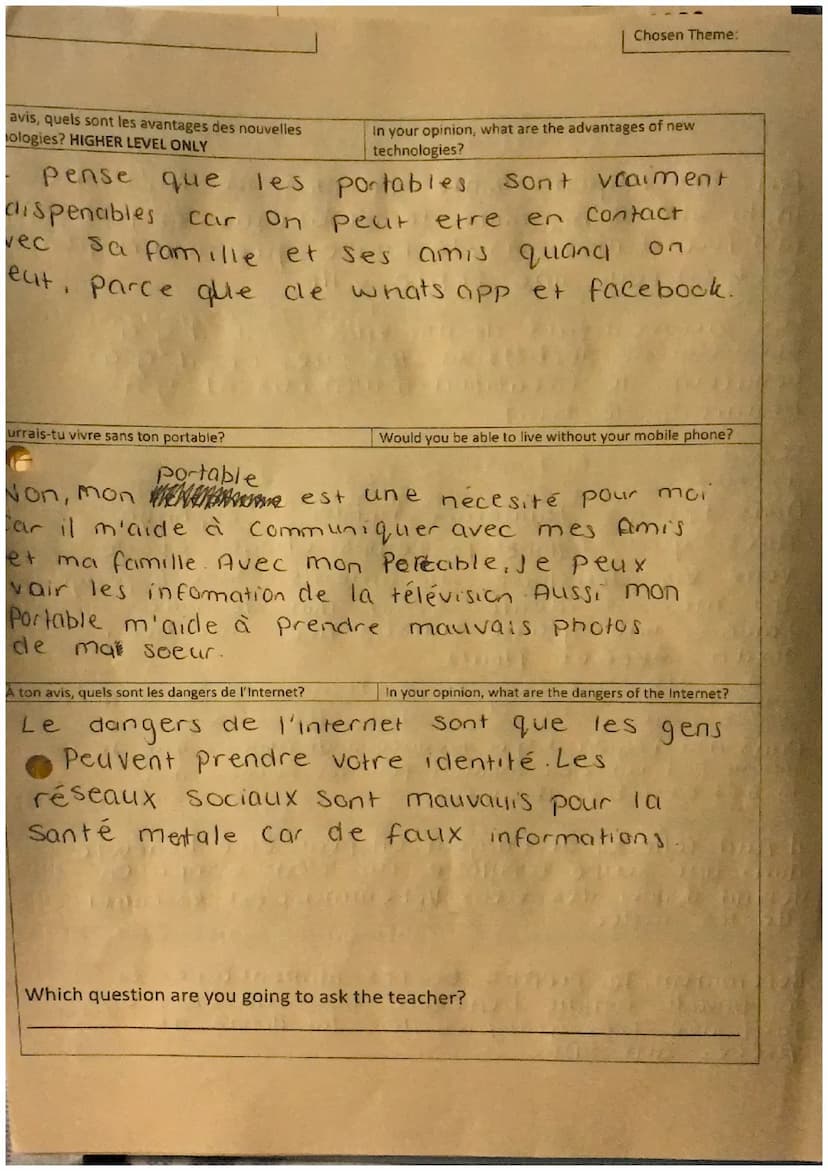 Chosen Theme:
avis, quels sont les avantages des nouvelles
ologies? HIGHER LEVEL ONLY
In your opinion, what are the advantages of new
technologies?
pense que les portables sont vraiment
dispenables car on peut etre en contact
vec sa famille et ses amis quand on
eut, parce que de whats app et facebook.
urrais-tu vivre sans ton portable?
Would you be able to live without your mobile phone?
portable
Non, mon est une necesité pour moi
car il m'aide à communiquer avec mes Amis
et ma famille. Avec mon Portable, Je peux
voir les information de la télévision Aussi mon
Portable m'aide à prendre mauvais photos
de ma soeur.
A ton avis, quels sont les dangers de l'Internet?
In your opinion, what are the dangers of the Internet?
Le dangers de l'internet sont que les gens
Peuvent prendre votre identité. Les
réseaux sociaux sont mauvauis pour la
Santé metale car de faux informations.
Which question are you going to ask the teacher?